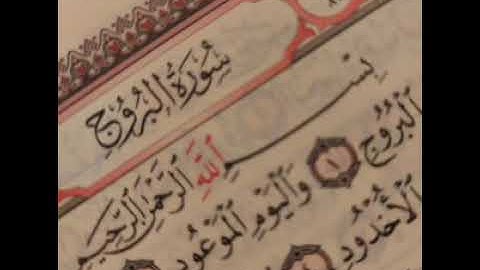 سُورَةُ الْبُرُوجِ
بِسْمِ اللَّهِ الرَّحْمَٰنِ الرَّحِيمِ
الْبُرُوجِ ١ وَالْيَوْمِ الْمَوْعُودِ
الْأُخْدُودِ